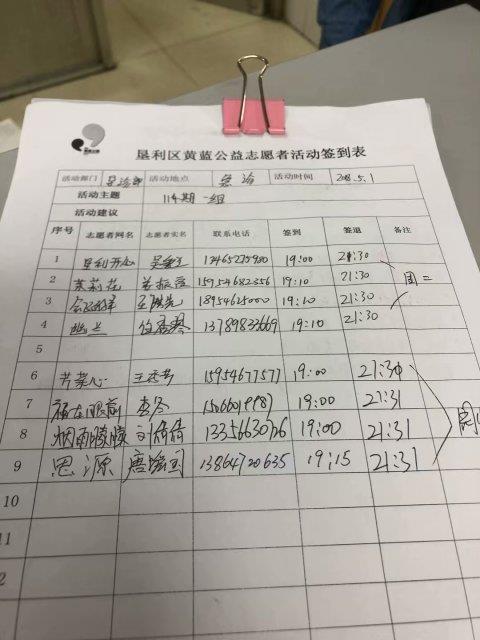 垦利区黄蓝公益志愿者活动签到表
活动部门 急诊部 活动地点 急诊 活动时间 2018.5.1
活动主题 114期一组
活动建议
序号 志愿者网名 志愿者实名 联系电话 签到 签退 备注
1 垦利开心 19:00 21:30
2 茉莉花 15954682356 19:10 21:30 周二
3 18954625000 19:10 21:30
4 13789833669 19:10 21:30
5
6 芹菜心 15954677577 19:00 21:30
7 福在眼前 李冬 19:00 21:31
8 烟雨朦朦 刘倩倩 13356630726 19:00 21:31
9 思源 13864720635 19:15 21:31
10
11
2